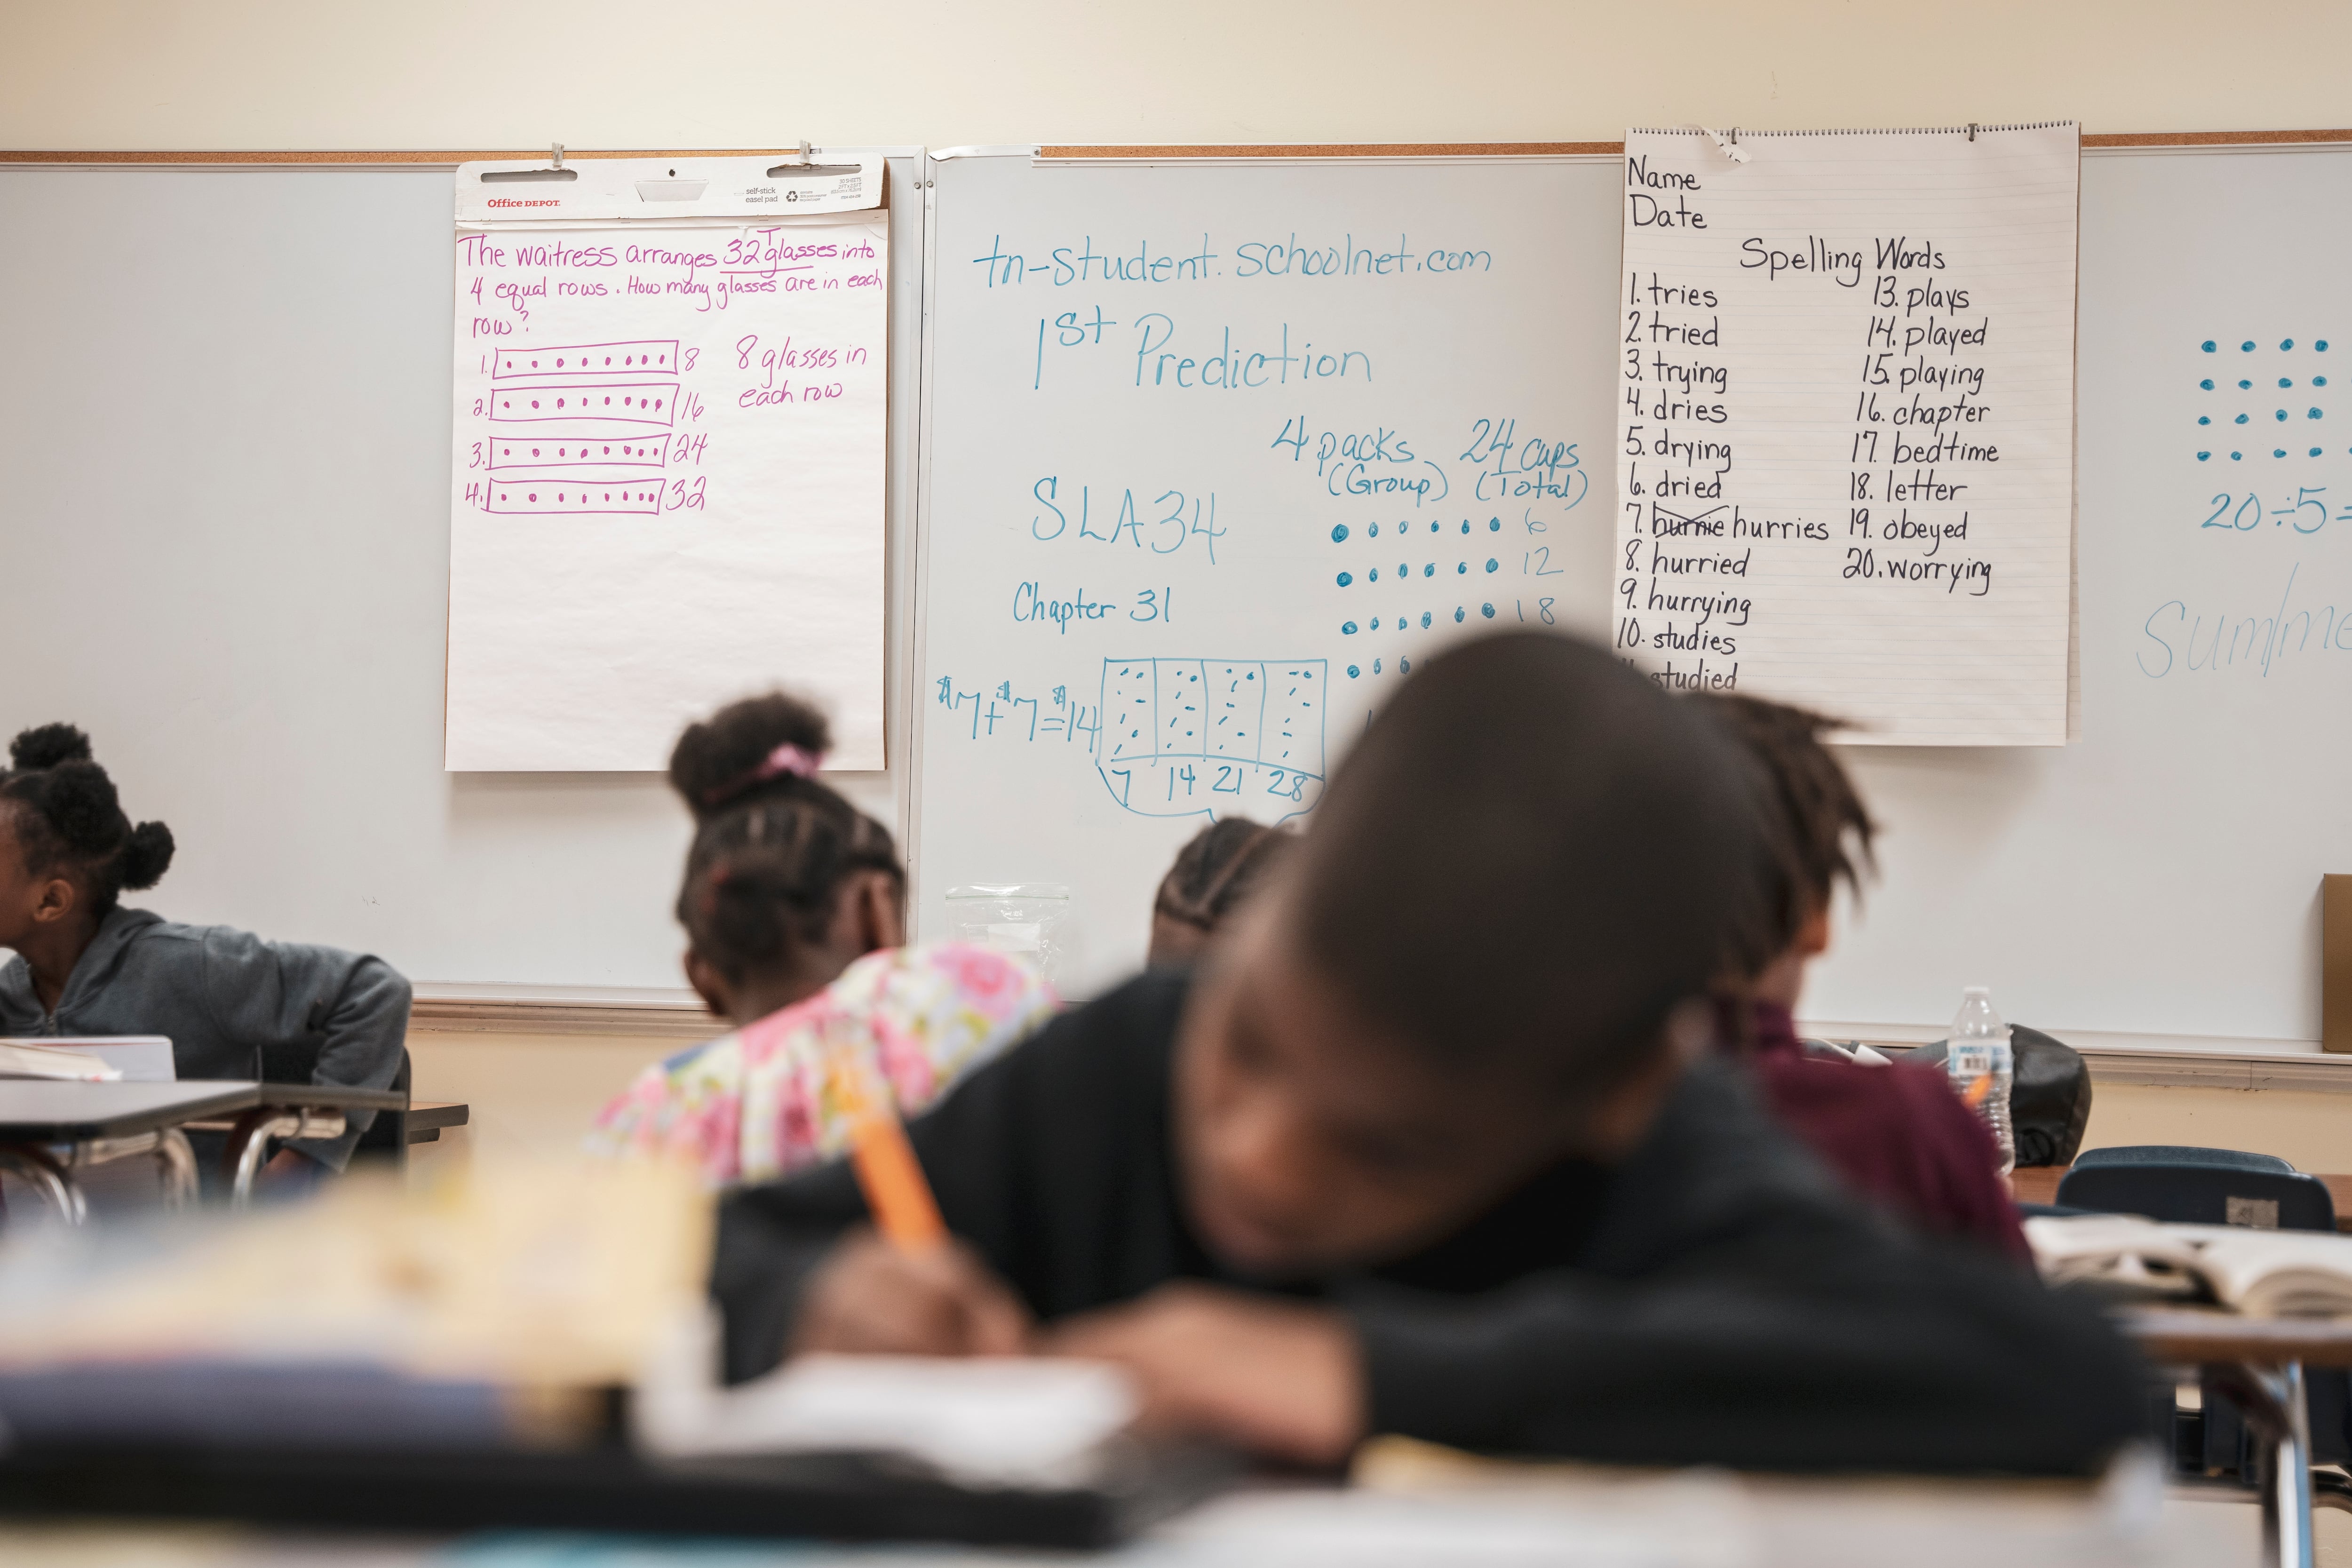 Office DEPOT.
self-stick
easel pad
The waitress arranges 32 glasses into
T
4 equal rows. How many glasses are in each
row?
1. 8
2. 16
3. 24
4. 32
8 glasses in
each row
tn-student.schoolnet.com
1st Prediction
4 packs 24 cups
(Group) (Total)
SLA34
6
12
18
Chapter 31
$7+$7=$14
7 14 21 28
Name
Date
Spelling Words
1. tries
2. tried
3. trying
4. dries
5. drying
6. dried
7. hurrie hurries
8. hurried
9. hurrying
10. studies
studied
13. plays
14. played
15. playing
16. chapter
17. bedtime
18. letter
19. obeyed
20. worrying
20÷5=